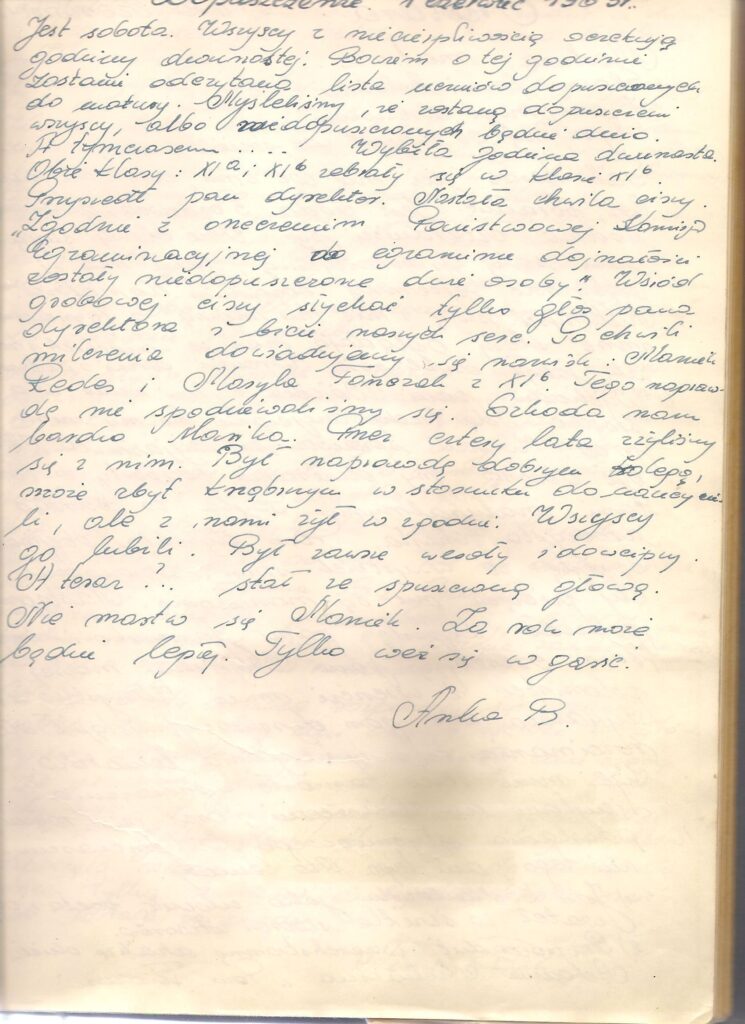 Dopuszczenie. 1 czerwiec 1963 r.
Jest sobota. Wszyscy z niecierpliwością oczekują
godziny dwunastej. Bowiem o tej godzinie
zostanie odczytana lista uczniów dopuszczonych
do matury. Myśleliśmy, że zostaną dopuszczeni
wszyscy, albo niedopuszczonych będzie dużo.
A tymczasem .... Wybiła godzina dwunasta.
Obie klasy: XIa i XIb zebrały się w klasie XIb.
Przyszedł pan dyrektor. Nastała chwila ciszy.
"Zgodnie z orzeczeniem Państwowej Komisji
Egzaminacyjnej do egzaminu dojrzałości
zostały niedopuszczone dwie osoby". Wśród
grobowej ciszy słychać tylko głos pana
dyrektora i bicie naszych serc. Po chwili
milczenia dowiadujemy się nazwisk: Maniek
Redes i Maryla z XIb. Tego napraw-
dę nie spodziewaliśmy się. Szkoda nam
bardzo Mańka. Przez cztery lata zżyliśmy
się z nim. Był naprawdę dobrym kolegą,
może zbyt krnąbrnym w stosunku do nauczycie-
li, ale z nami żył w zgodzie. Wszyscy
go lubili. Był zawsze wesoły i dowcipny.
A teraz ?.. stał ze spuszczoną głową.
Nie martw się Maniek. Za rok może
będzie lepiej. Tylko weź się w garść.
Anka B.